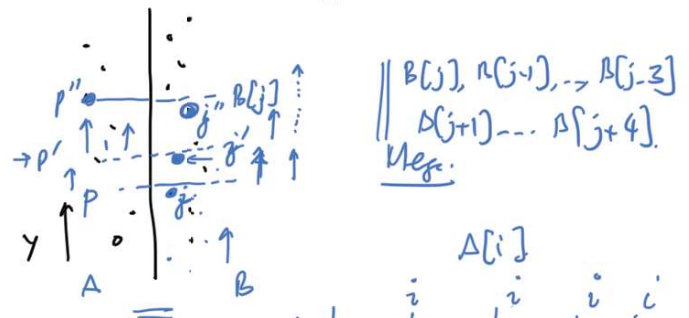 p'' B[j]
j''
→p' j'
p j
y
A B
B[j], B[j-1], .., B[j-3]
B[j+1] ---- B[j+4].
A[i]
i i i i